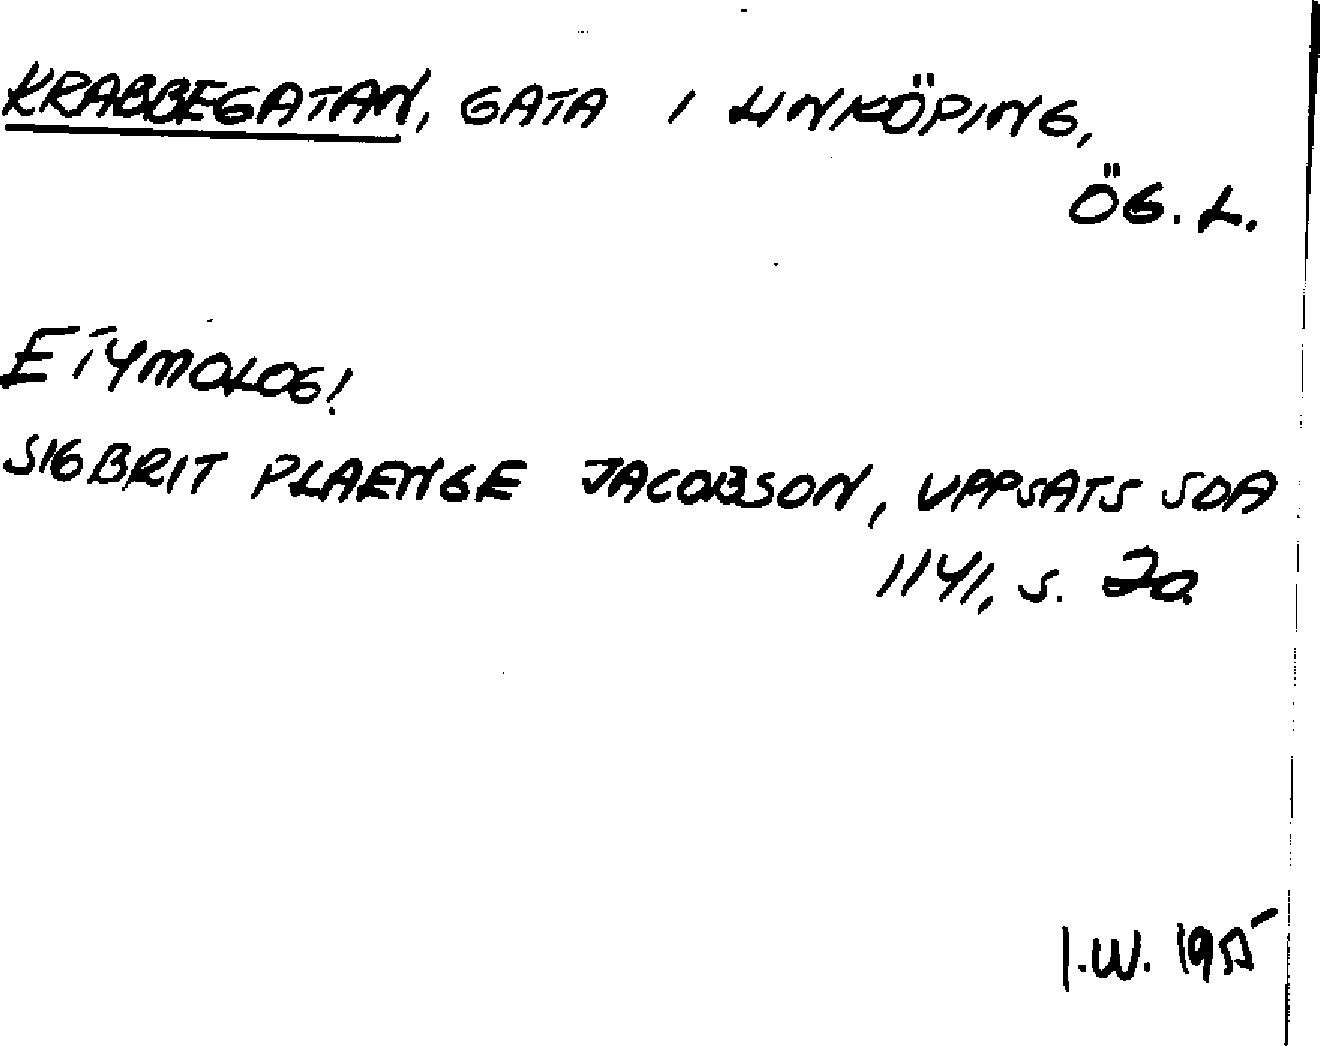 KRABBEGATAN, GATA I LINKÖPING,
ÖG. L.
ETYMOLOGI
SIGBRIT PLAENGE JACOBSON, UPPSATS SOA
1141, S. 20.
I.W. 1955